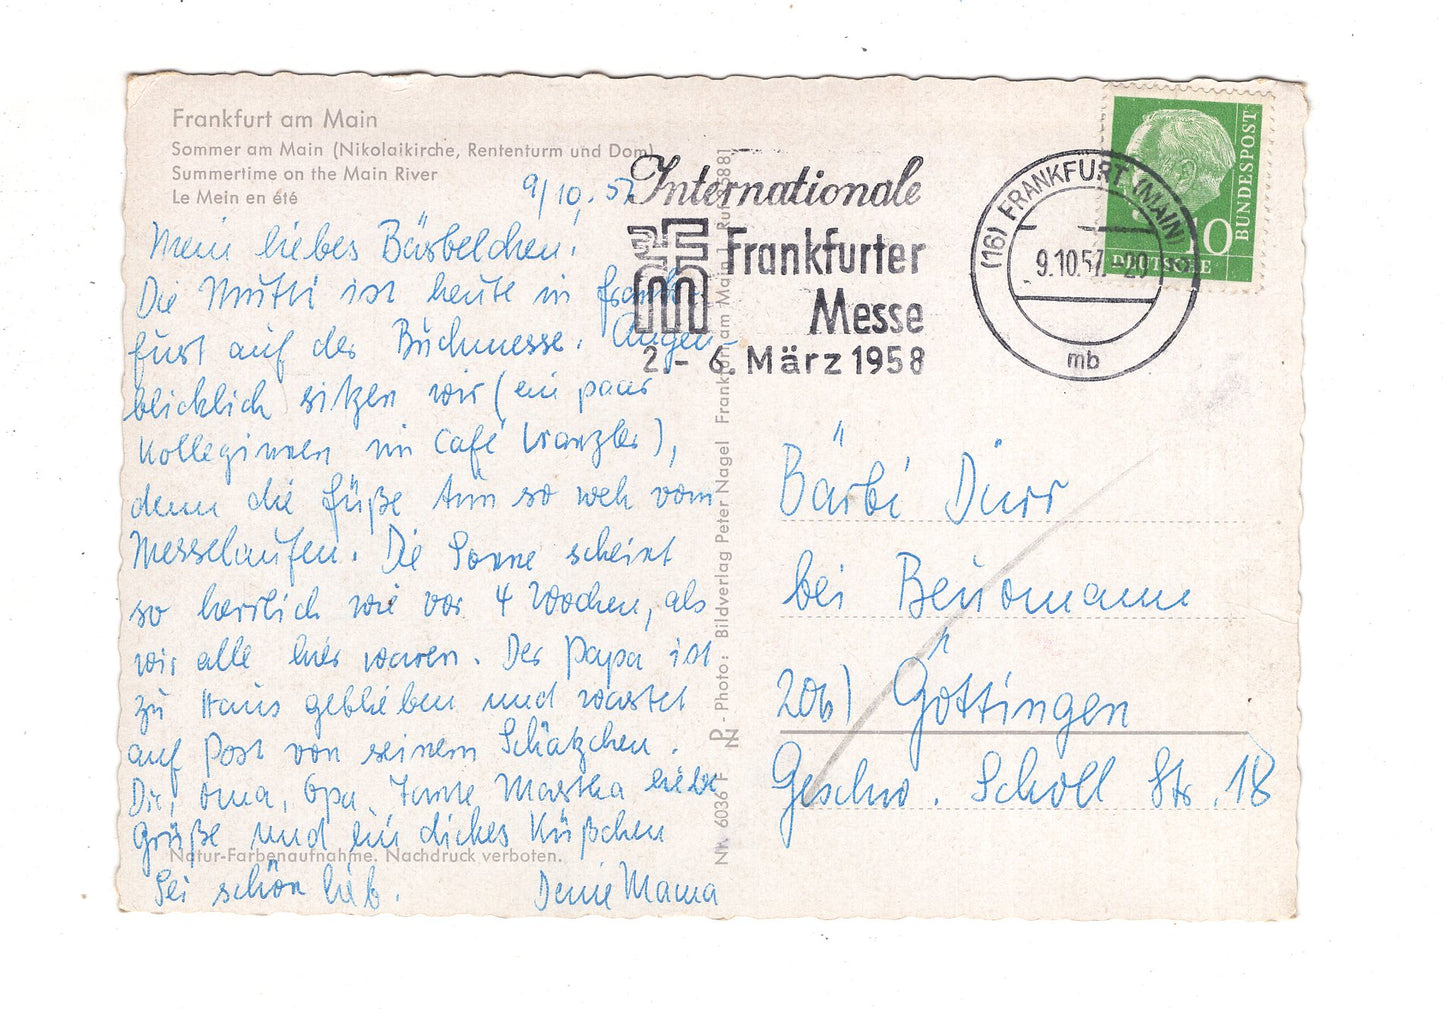 Frankfurt am Main
Sommer am Main (Nikolaikirche, Rententurm und Dom)
Summertime on the Main River
Le Mein en été
9/10. 57
Mein liebes Bärbelchen!
Die Mutti ist heute in Frank-
furt auf der Buchmesse. Augen-
blicklich sitzen wir (ein paar
Kolleginnen im Café Kranzler),
denn die Füße tun so weh vom
Messelaufen. Die Sonne scheint
so herrlich wie vor 4 Wochen, als
wir alle hier waren. Der Papa ist
zu Haus geblieben und wartet
auf Post von seinem Schätzchen.
Dir, Oma, Opa, Tante Martha liebe
Grüße und ein dickes Küßchen
Sei schön lieb. Deine Mama
Natur-Farbenaufnahme. Nachdruck verboten.
Nr. 6036 F - Photo: Bildverlag Peter Nagel Frankfurt am Main
Internationale
Frankfurter
Messe
2.- 6. März 1958
(16) FRANKFURT (MAIN)
9.10.57.-20
mb
DEUTSCHE
BUNDESPOST
10
Bärbi Dürr
bei
20b) Göttingen
Geschw. Scholl Str. 18